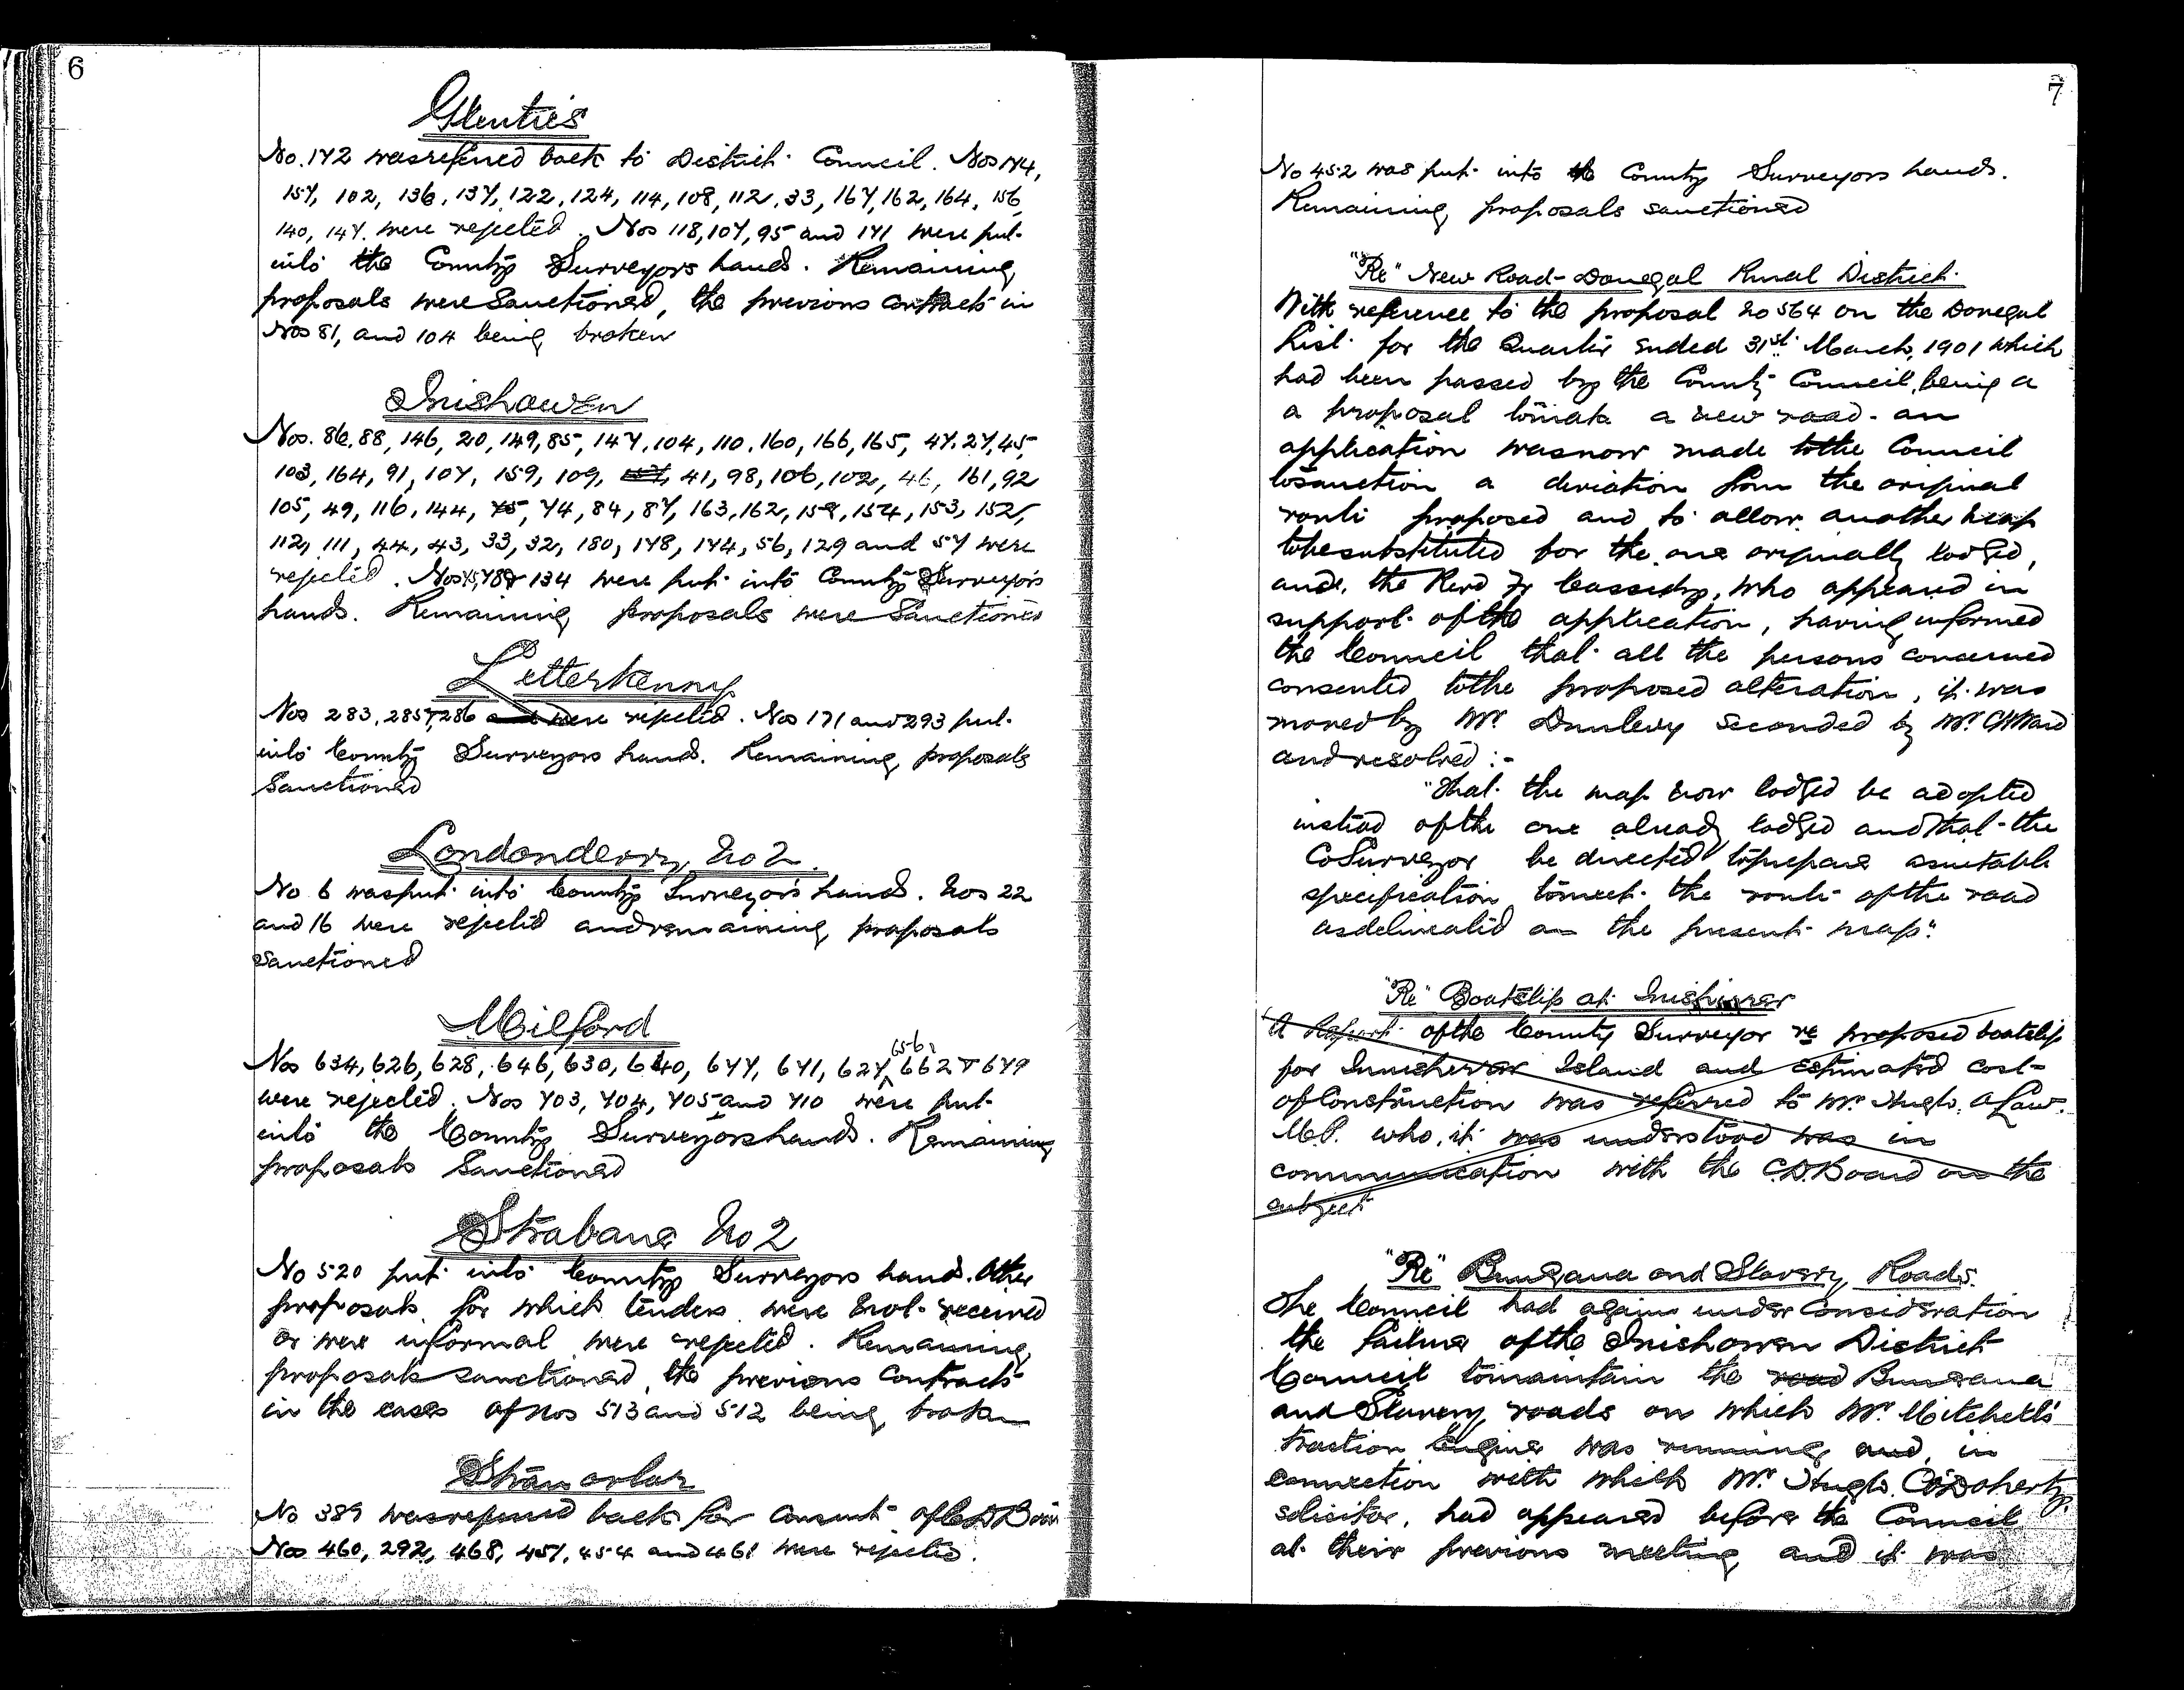 6
Glenties
No. 142 was referred back to District Council. Nos 144,
157, 102, 136, 137, 122, 124, 114, 108, 112, 33, 167, 162, 164, 156,
140, 147. were rejected. Nos 118, 107, 95 and 141 were put
into the County Surveyors hands. Remaining
proposals were Sanctioned, the previous contracts in
Nos 81, and 104 being broken
Inishowen
Nos. 86, 88, 146, 20, 149, 85, 147, 104, 110, 160, 166, 165, 47, 27, 45,
103, 164, 91, 107, 159, 109, 41, 98, 106, 102, 46, 161, 92
105, 49, 116, 144, 75, 74, 84, 87, 163, 162, 158, 154, 153, 152,
112, 111, 44, 43, 33, 32, 180, 178, 174, 56, 129 and 57 were
rejected. Nos 75, 78 & 134 were put into County Surveyors
hands. Remaining proposals were Sanctioned
Letterkenny
Nos 283, 285 & 286 and were rejected. Nos 171 and 293 put
into County Surveyors hands. Remaining proposals
Sanctioned
Londonderry No 2.
No 6 was put into County Surveyor's hands. Nos 22
and 16 were rejected and remaining proposals
sanctioned
Milford
Nos 634, 626, 628, 646, 630, 640, 647, 641, 627, 656, 662 & 649
were rejected. Nos 703, 704, 705 and 710 were put
into the County Surveyors hands. Remaining
proposals Sanctioned
Strabane No 2
No 520 put into County Surveyors hands. Other
proposals for which tenders were not received
or were informal were rejected. Remaining
proposals sanctioned, the previous Contracts
in the cases of Nos 513 and 512 being broken
Stranorlar
No 389 was referred back for Consent of CD Board
Nos 460, 292, 468, 451, 454 and 461 were rejected.
7
No 452 was put into the County Surveyors hands.
Remaining proposals sanctioned
"Re" New Road - Donegal Rural District.
With reference to the proposal No 564 on the Donegal
List for the Quarter ended 31st March, 1901 which
had been passed by the County Council, being a
a proposal to make a new road - an
application was now made to the Council
to sanction a deviation from the original
route proposed and to allow another map
to be substituted for the one originally lodged,
and, the Revd Fr Cassidy, who appeared in
support of the application, having informed
the Council that all the persons concerned
consented to the proposed alteration, it was
moved by Mr. Dunlevy seconded by Mr. Ward
and resolved :-
"That the map now lodged be adopted
instead of the one already lodged and that the
Co Surveyor be directed to prepare a suitable
specification to meet the route of the road
as delineated on the present map".
"Re" Boatslip at
A Report of the County Surveyor re proposed boatslip
for Island and estimated cost
of Construction was referred to Mr. Hugh A Law.
M.P. who, it was understood was in
communication with the C.D. Board on the
subject
"Re" Buncrana and Slavery Roads.
The Council had again under Consideration
the failure of the Inishowen District
Council to maintain the road Buncrana
and Slavery roads on which Mr. Mitchell's
traction Engine was running and, in
connection with which Mr. Hugh C O'Doherty,
solicitor, had appeared before the Council
at their previous meeting and it was